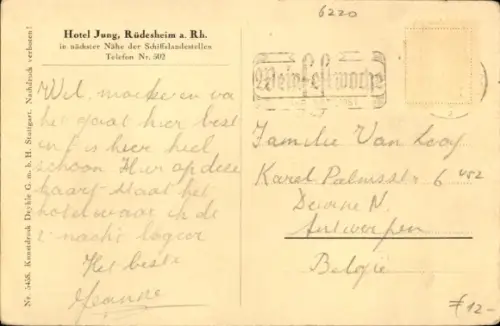 6220
Hotel Jung, Rüdesheim a. Rh.
in nächster Nähe der Schiffslandestellen
Telefon Nr. 502
Weinfestwoche
Wel, moeke en va
het gaat hier best
en 't is hier heel
schoon. Hier op deze
kaart staat het
hotel waar ik de
nacht logeer
Het beste
Jeanne
Familie Van Looy
Karel Palmsstr 6
Deurne N.
Antwerpen
België
12-
Nr. 5458. Kunstdruck Drykle G. m. b. H. Stuttgart. Nachdruck verboten!